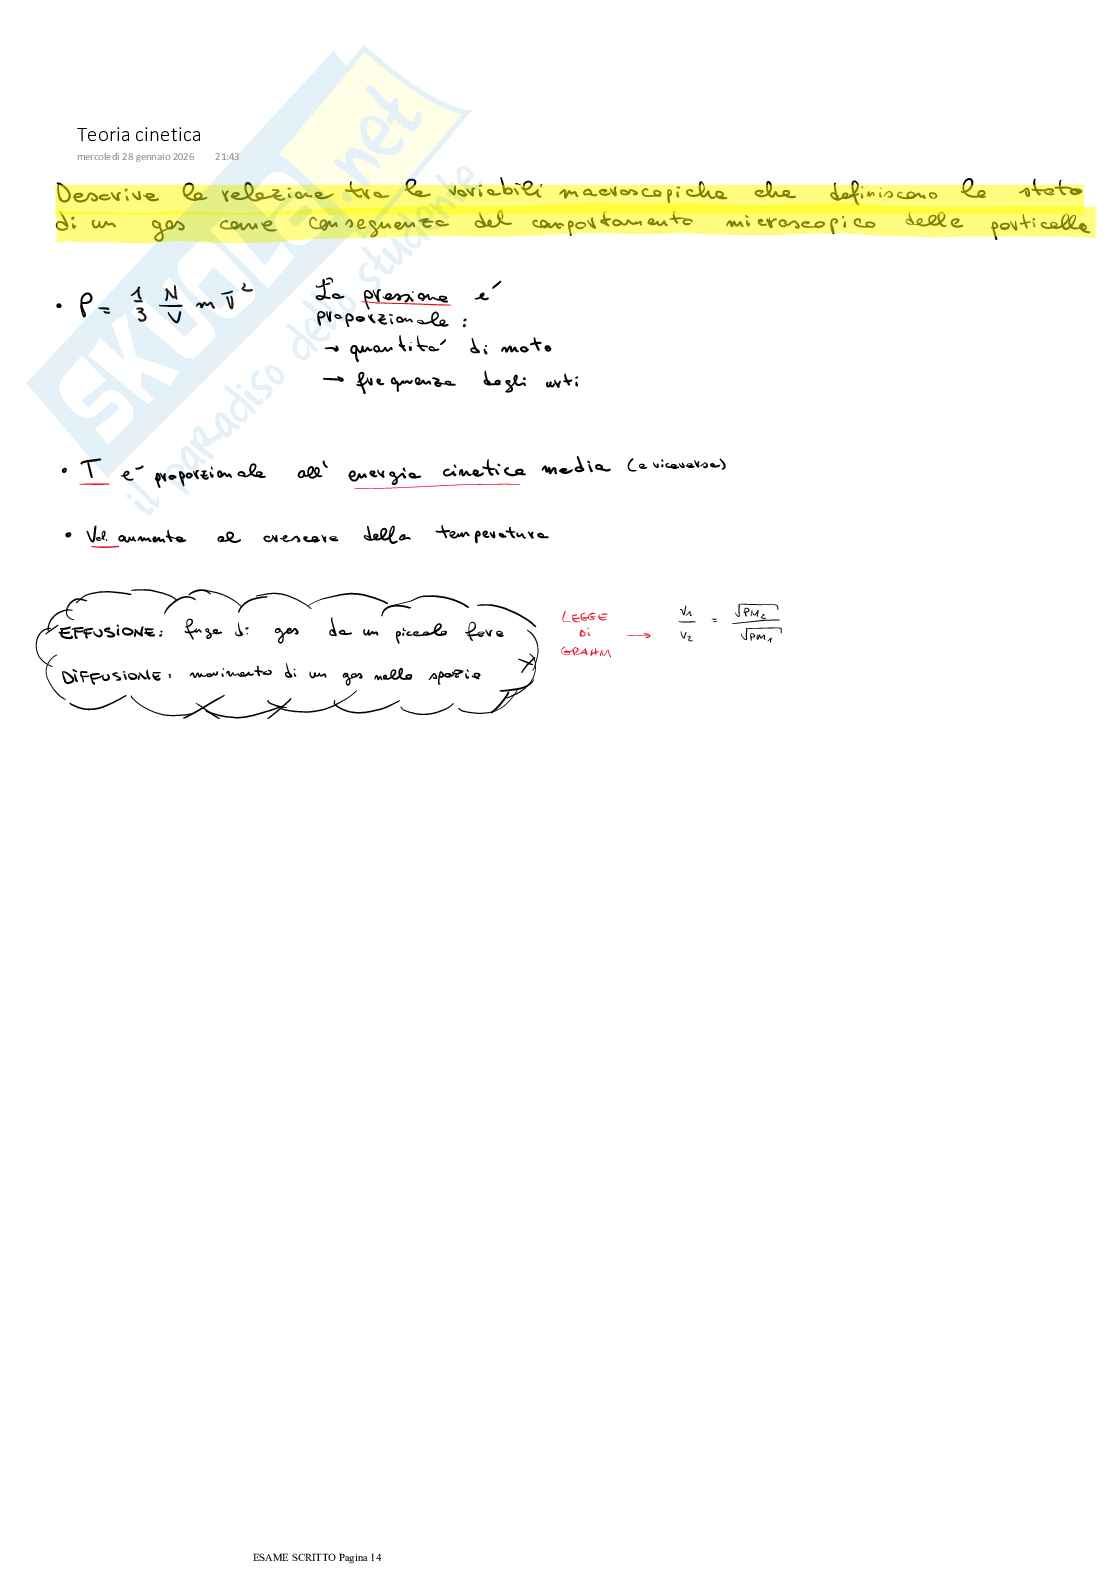 Teoria cinetica
mercoledì 28 gennaio 2026 21:43
Descrive la relazione tra le variabili macroscopiche che definiscono lo stato
di un gas come conseguenza del comportamento microscopico delle particelle
• P = 1/3 N/V m v̅²
La pressione e'
proporzionale :
→ quantita' di moto
→ frequenza degli urti
• T e' proporzionale all' energia cinetica media (e viceversa)
• Vol. aumenta al crescere della temperatura
EFFUSIONE: fuga di gas da un piccolo foro
DIFFUSIONE: movimento di un gas nello spazio
LEGGE
DI
GRAHM
→ V₁/V₂ = √PM₂/√PM₁
SKUOLA.net
il paradiso dello studente
ESAME SCRITTO Pagina 14